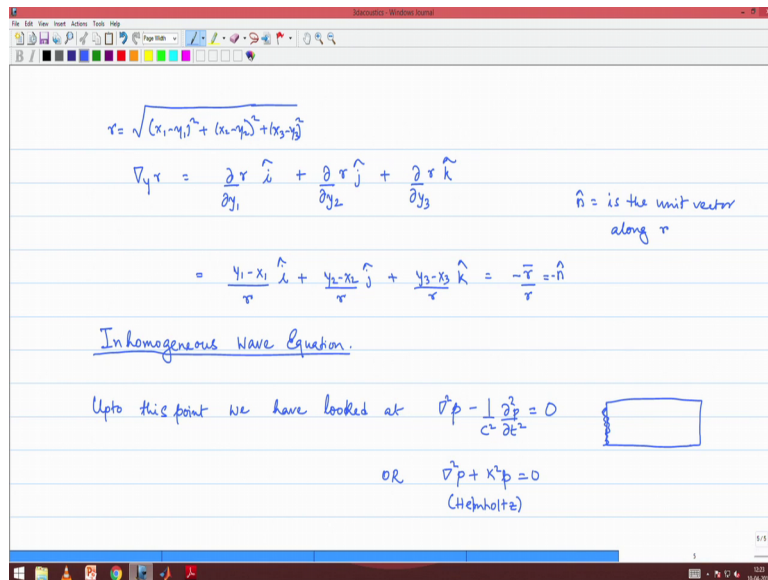 3dacoustics - Windows Journal
File Edit View Insert Actions Tools Help
Page Width
B I
r = √(x₁-y₁)² + (x₂-y₂)² + (x₃-y₃)²
∇y r = ∂r/∂y₁ î + ∂r/∂y₂ ĵ + ∂r/∂y₃ k̂
n̂ = is the unit vector
along r
= y₁-x₁/r î + y₂-x₂/r ĵ + y₃-x₃/r k̂ = -r̄/r = -n̂
Inhomogeneous Wave Equation.
Upto this point we have looked at ∇²p - 1/c² ∂²p/∂t² = 0
OR ∇²p + K²p = 0
(Helmholtz)
5/5
5
12:23